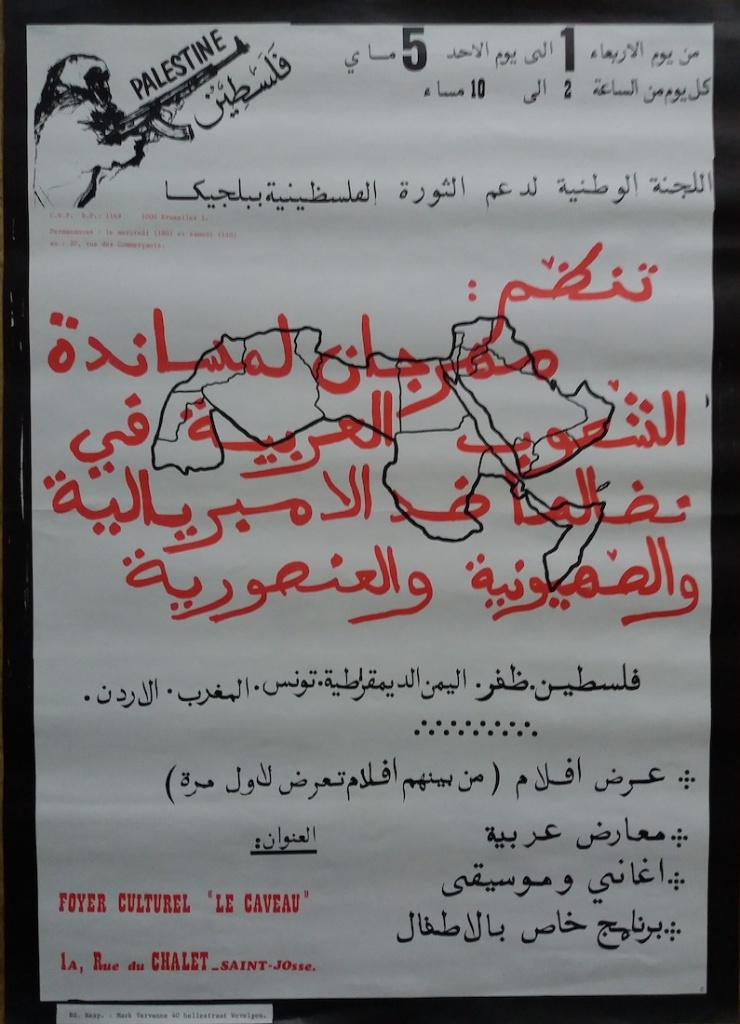 PALESTINE
فلسطين
من يوم الاربعاء 1 الى يوم الاحد 5 ماي
كل يوم من الساعة 2 الى 10 مساء
اللجنة الوطنية لدعم الثورة الفلسطينية ببلجيكا
C.N.P. B.P.: 1169 1000 Bruxelles 1.
Permanences : le mercredi (18H) et samedi (14H)
au : 20, rue des Commerçants.
تنظم :
مهرجان لمساندة
الشعوب العربية في
نضالها ضد الامبريالية
والصهيونية والعنصورية
فلسطين. ظفر. اليمن الديمقراطية. تونس. المغرب. الاردن.
عرض افلام (من بينهم افلام تعرض لاول مرة)
معارض عربية
العنوان:
اغاني وموسيقى
برنامج خاص بالاطفال
FOYER CULTUREL "LE CAVEAU"
1A, Rue du CHALET_SAINT-JOsse.
Ed. Resp. : Mark Vervenne 40 hellestraat Wevelgem.